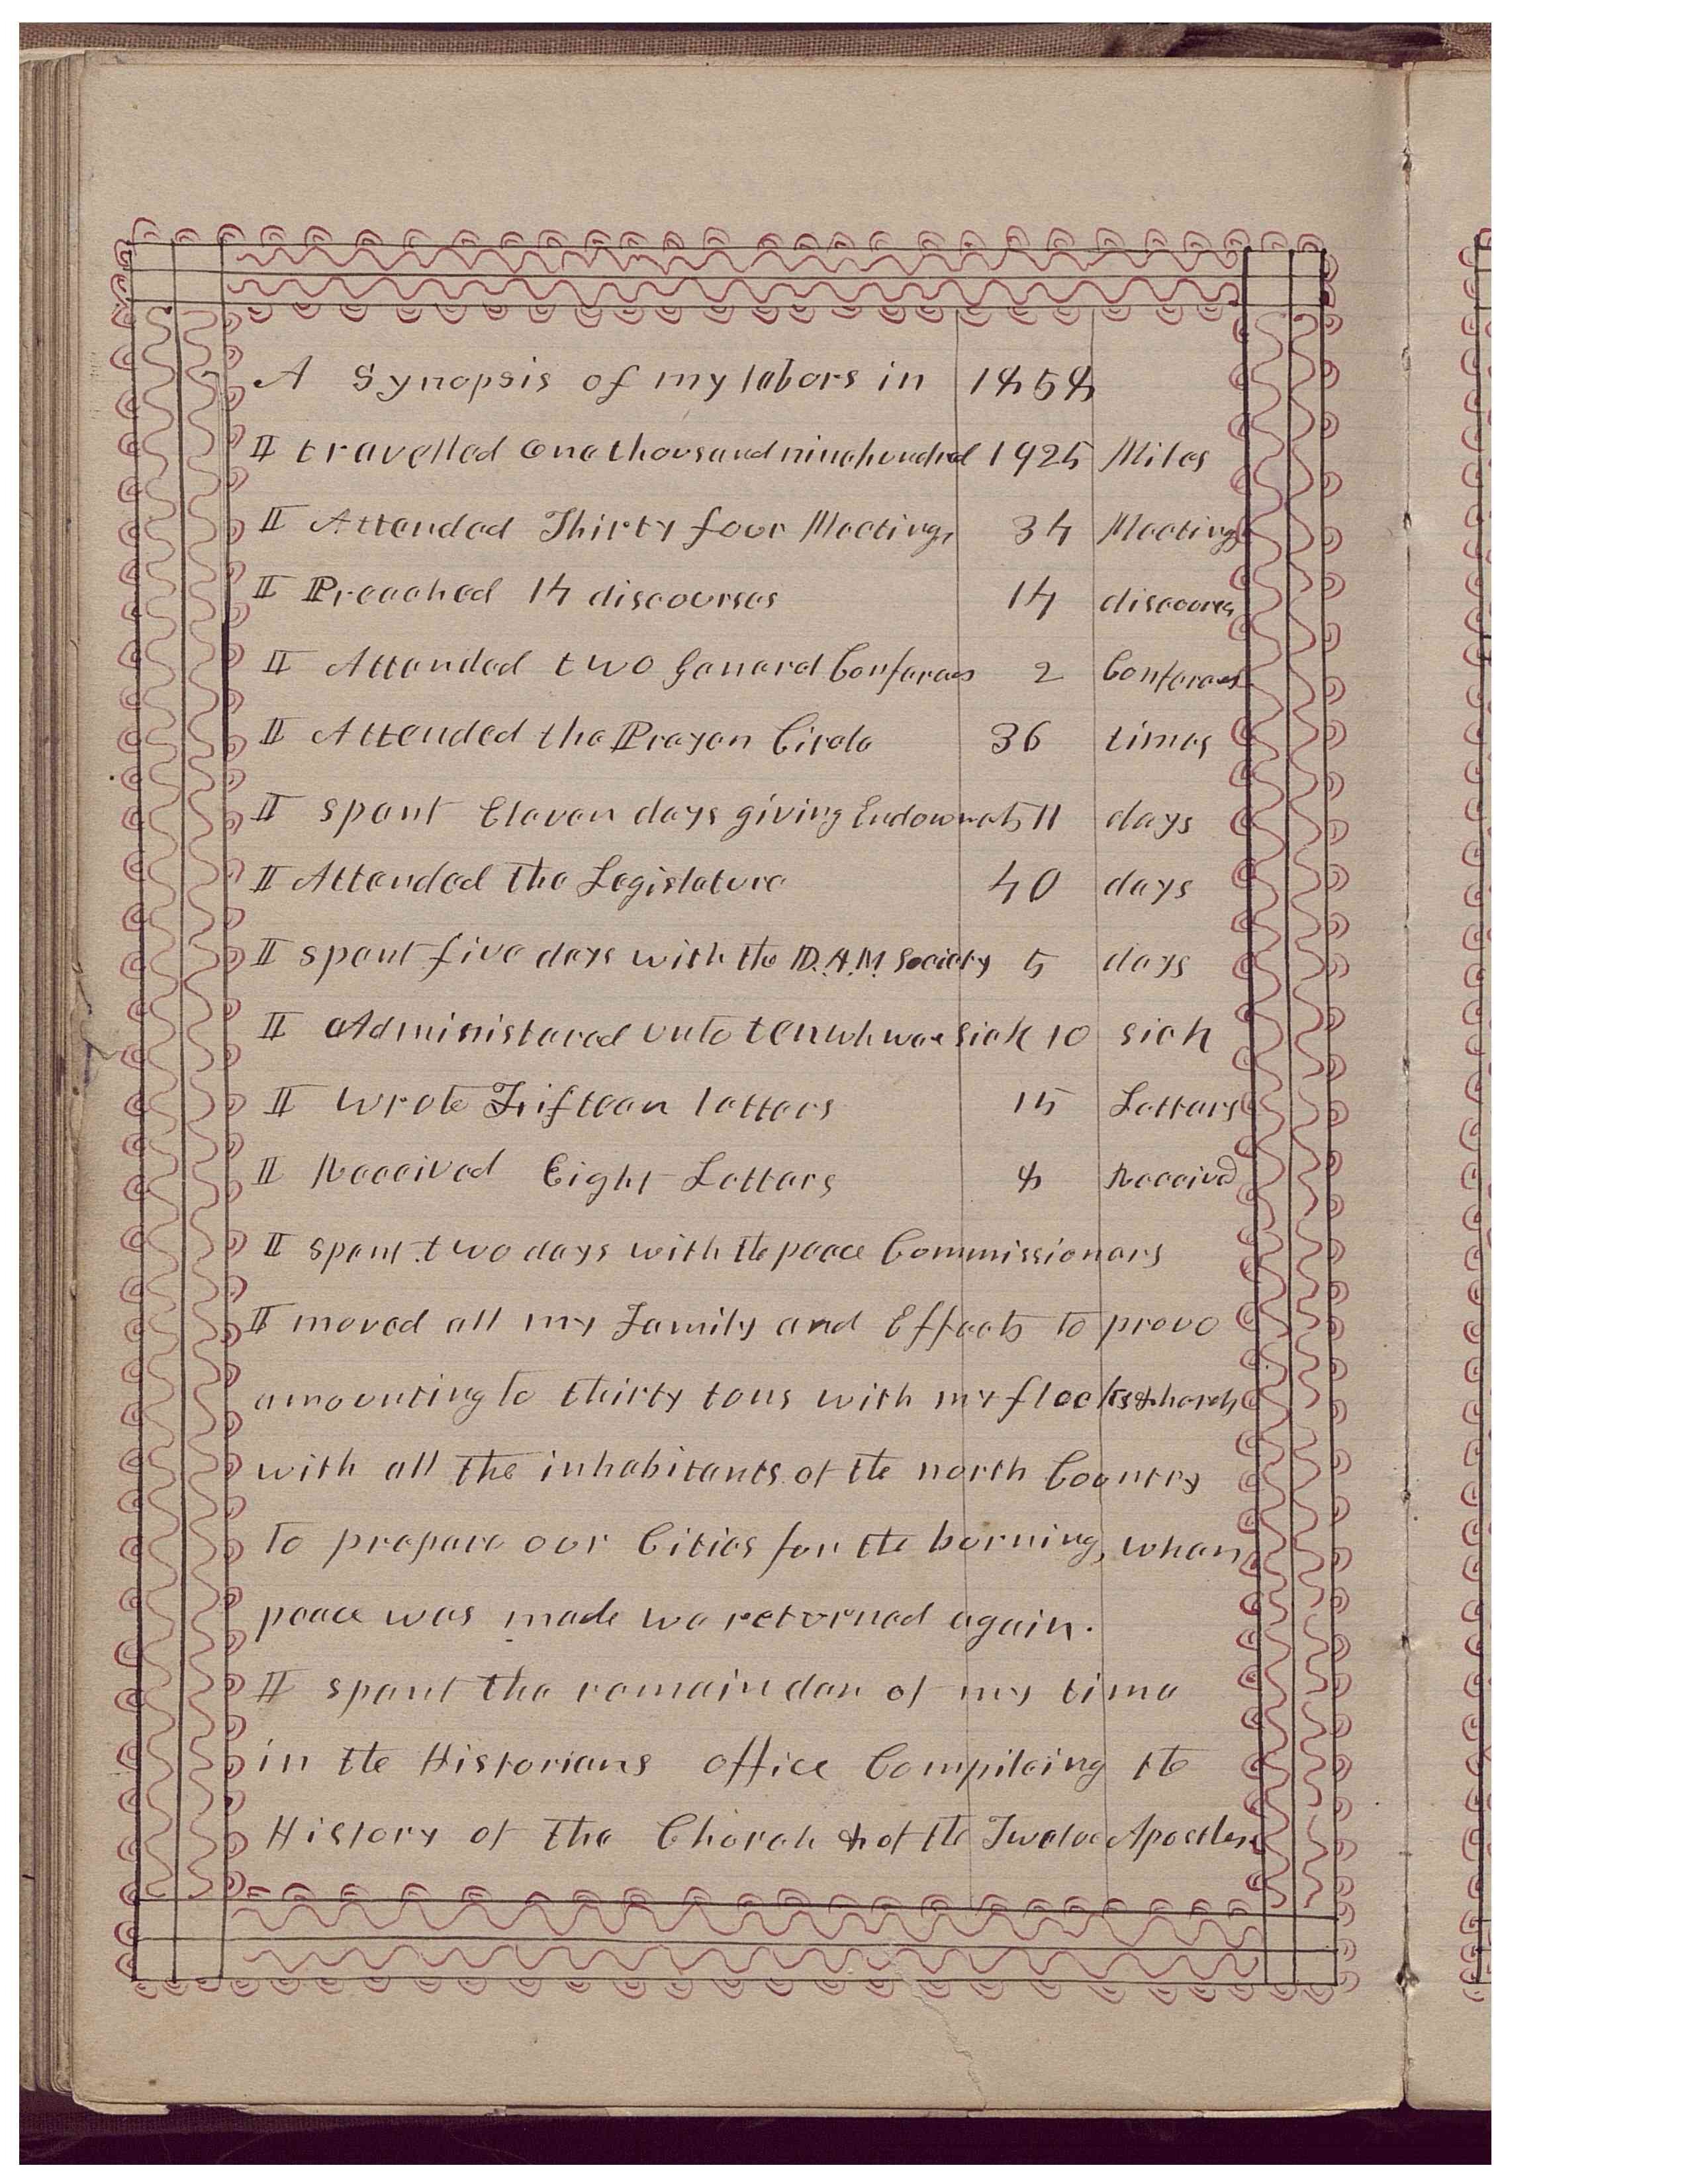 A Synopsis of my labors in 1858
I travelled one thousand nine hundred 1925 Miles
I Attended Thirty four Meetings 34 Meetings
I Preached 14 discourses 14 discourses
I Attended two General Conferences 2 Conferences
I Attended the Prayer Circle 36 times
I spent Eleven days giving Endowments 11 days
I Attended the Legislature 40 days
I spent five days with the D.A.M. Society 5 days
I Administered unto ten wh ware sick 10 sick
I wrote Fifteen letters 15 Letters
I Received Eight Letters 8 Received
I spent two days with the peace Commissioners
I moved all my Family and Effects to provo
amounting to thirty tons with my flocks & herds
with all the inhabitants of the north Country
to prepare our Cities for the burning, when
peace was made we returned again.
I spent the remainder of my time
in the Historians office Compileing the
History of the Church & of the Twelve Apostles